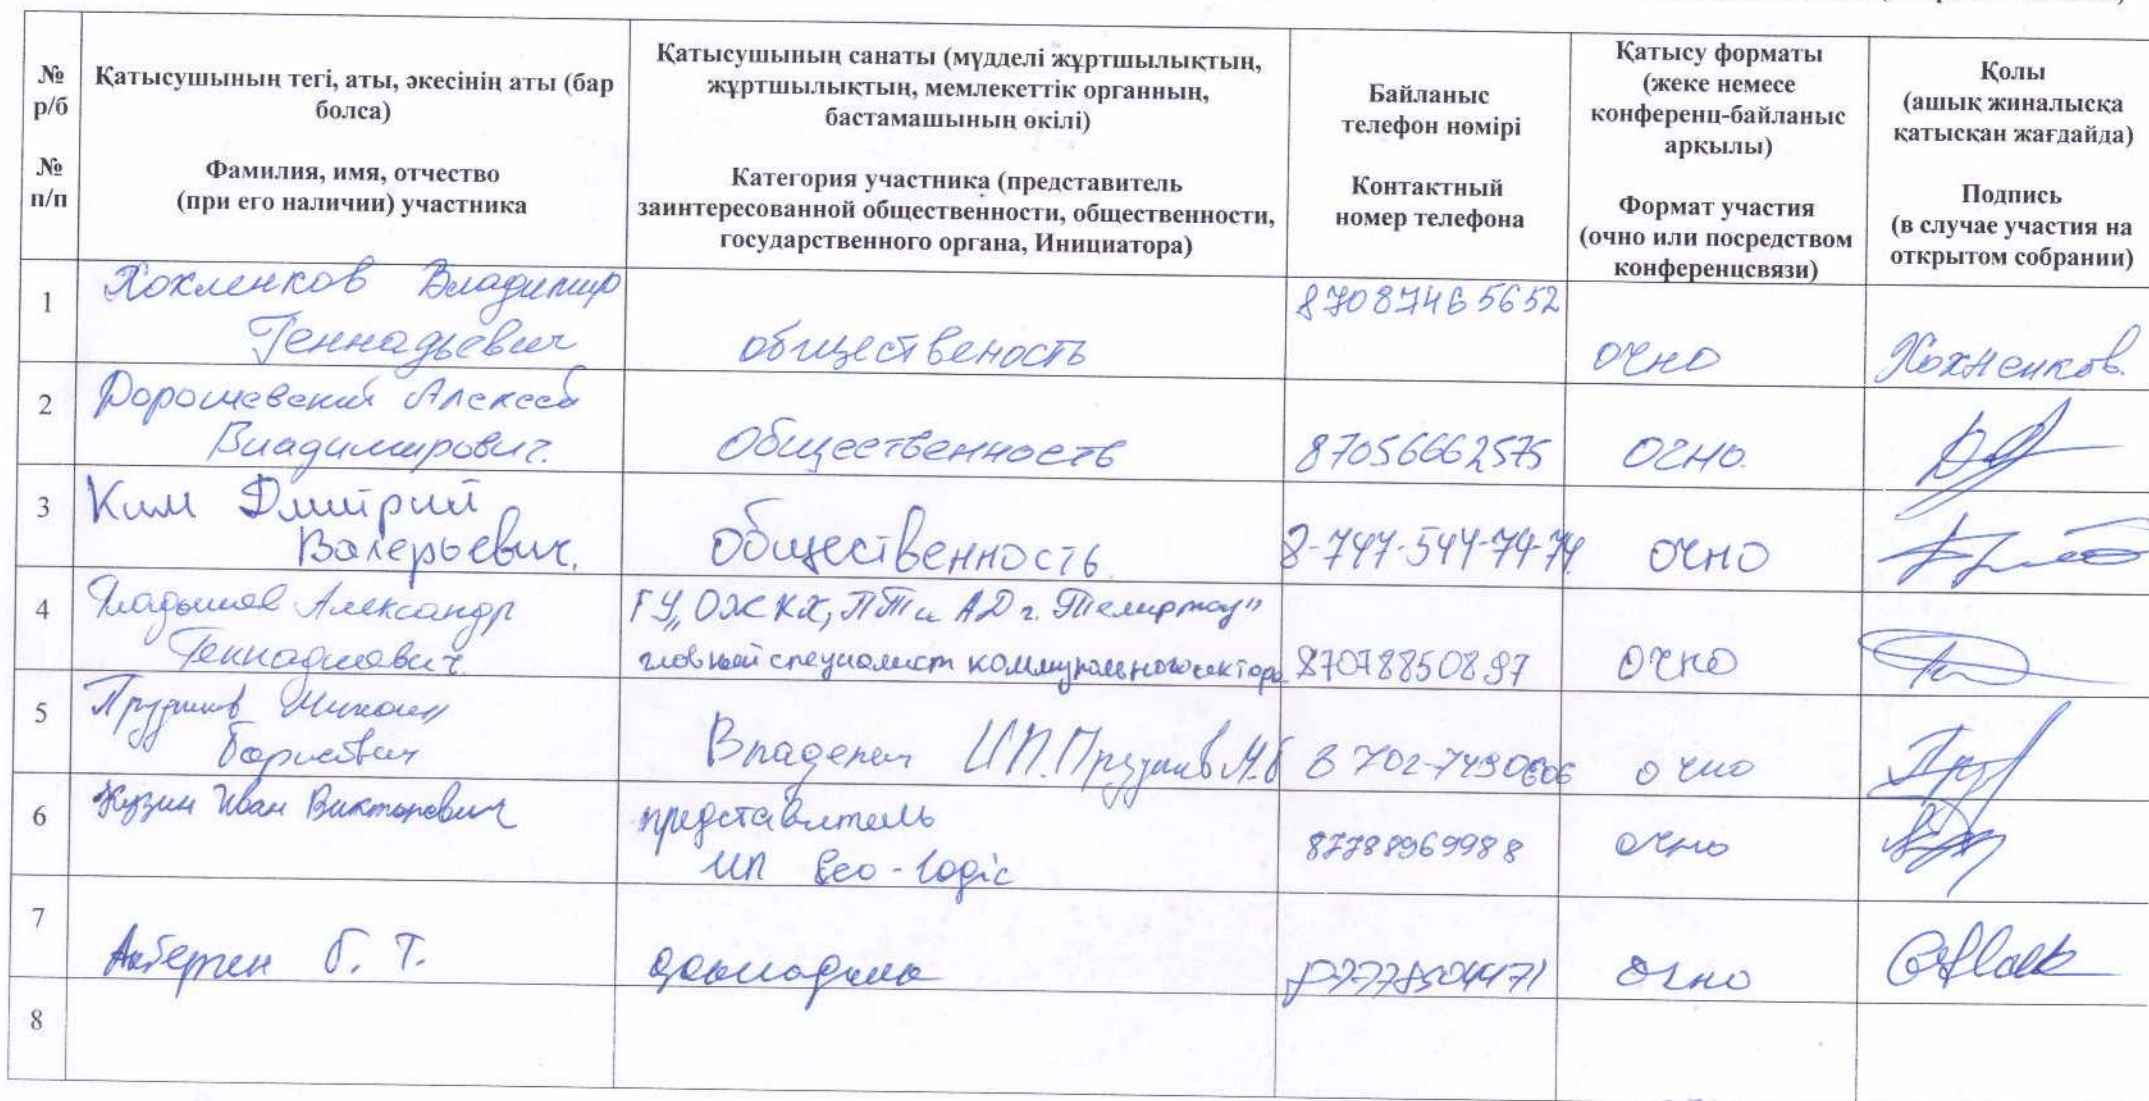 №
р/б
№
п/п
Қатысушының тегі, аты, әкесінің аты (бар
болса)
Фамилия, имя, отчество
(при его наличии) участника
Қатысушының санаты (мүдделі жұртшылықтың,
жұртшылықтың, мемлекеттік органның,
бастамашының өкілі)
Категория участника (представитель
заинтересованной общественности, общественности,
государственного органа, Инициатора)
Байланыс
телефон нөмірі
Контактный
номер телефона
Қатысу форматы
(жеке немесе
конференц-байланыс
арқылы)
Формат участия
(очно или посредством
конференцсвязи)
Қолы
(ашық жиналысқа
қатысқан жағдайда)
Подпись
(в случае участия на
открытом собрании)
1
Хохленков Владимир
Геннадьевич
общественость
87087465652
очно
2
Дорошевский Алексей
Владимирович.
Общественность
87056662575
очно.
3
Ким Дмитрий
Валерьевич.
Общественность
8-747-544-74-74.
очно
4
Александр
Геннадиевич
ГУ "ОЖКХ, ПТ и АД г. Темиртау"
главный специалист коммунального сектора
87078850897
очно
5
Михаил
Борисович
Владелец ИП.
8 702-7490606
очно
6
Иван Викторович
представитель
ИП Eco-logic
87788969988
очно
7
Б. Т.
очно
8